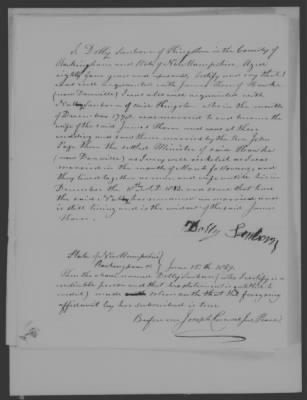 I Dolly Sanborn of Kingston in the County of
Rockingham and State of New Hampshire Aged
eighty four years and upwards, testify and say that I
was well acquainted with James Thorn of Hawke
(now Danville) I was also well acquainted with
Sanborn of said Kingston who in the month
of December 1778 was married to and became the
wife of the said James Thorn and was at their
wedding and saw them married by the Rev John
Page then the settled Minister of said Hawke
(now Danville) as I very well recollect as I was
married in the month of March following and
they lived together as man and wife until he died in
December the and since that time
the said has remained unmarried and
is still living and is the widow of the said James
Thorn.
Dolly Sanborn
State of New Hampshire
Rockingham ss June 15th 1839.
Then the above named Dolly Sanborn (who I certify is a
credible person and that her statement is entitled to
credit) made solemn oath that the foregoing
affidavit by her subscribed is true
Before me Joseph Jus Peace